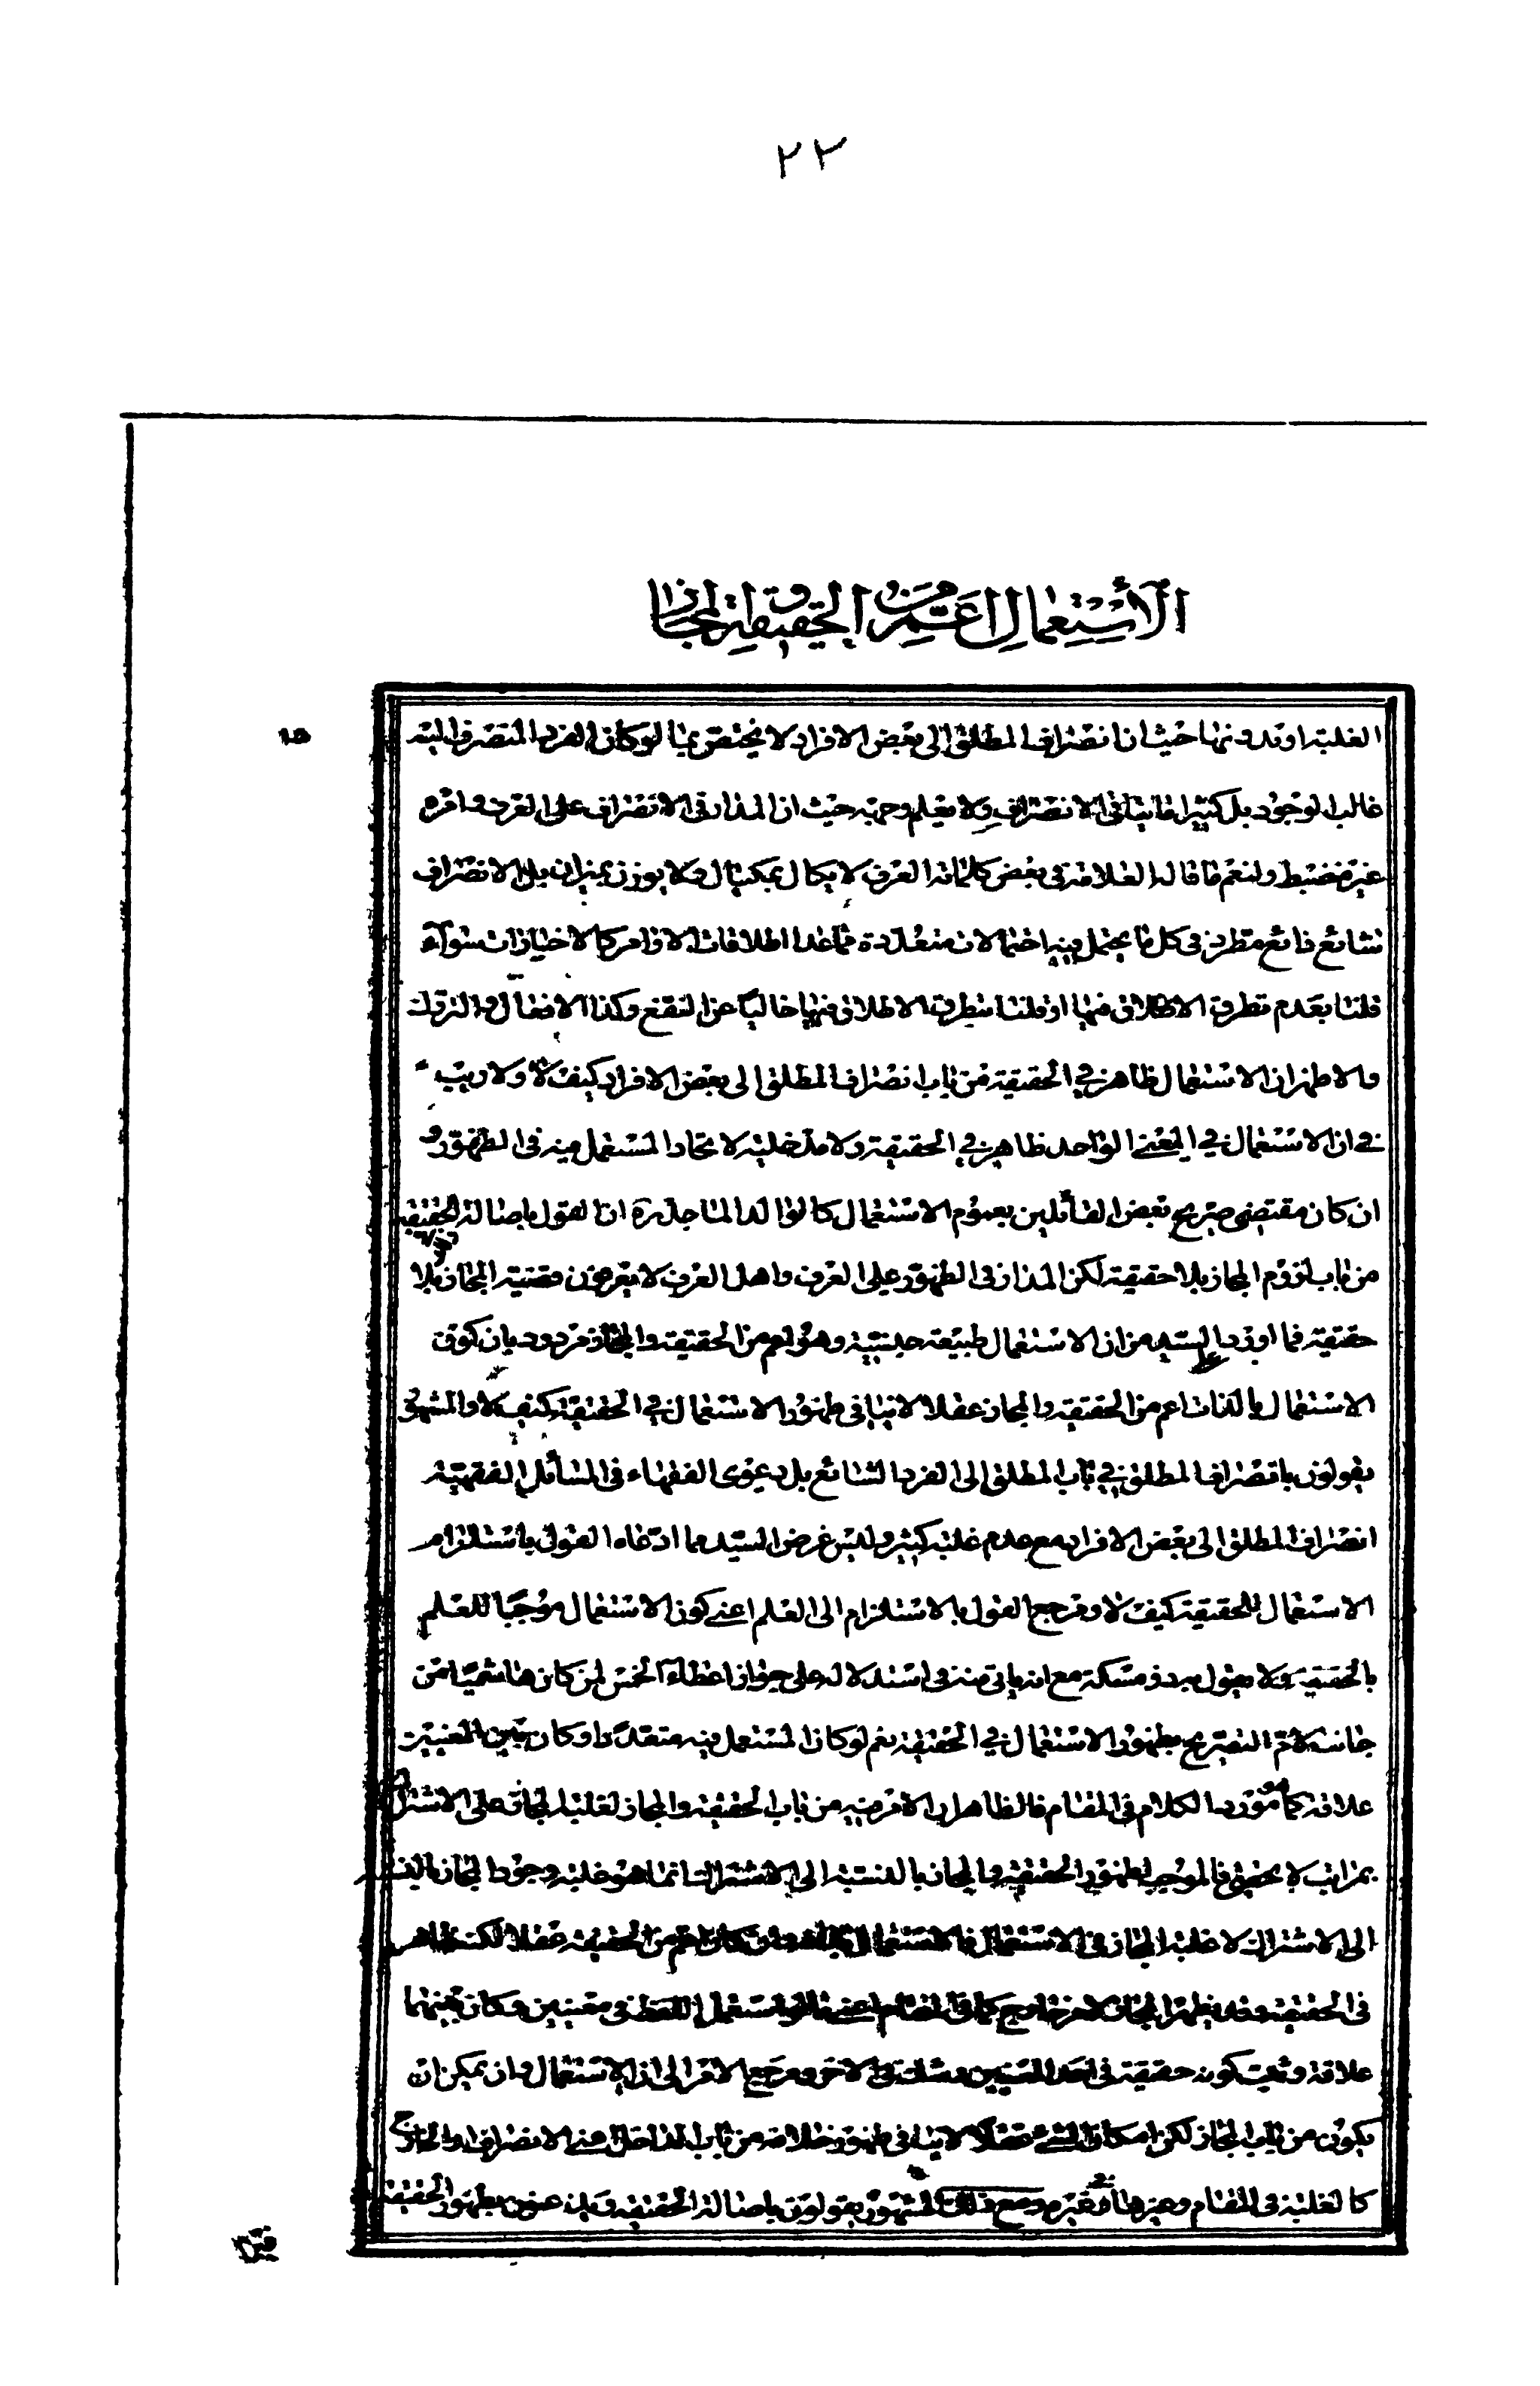 ٢٢
الاستعمال اعم من الحقيقة والمجاز
١٥
الغلبة او بدونها حيث ان انصراف المطلق الى بعض الافراد لا يختص بما لو كان الفرد المنصرف اليه
غالب الوجود بل كثيرا ما يتاتى الانصراف ولا يعلم وجهه حيث ان المدار فى الانصراف على العرف وامره
غير منضبط ولنعم ما قال العلامة فى بعض كلماته العرف لا يكال بمكيال ولا يوزن بميزان بل الانصراف
شائع ذائع مطرد فى كل ما يحتمل فيه احتمالات متعددة ما عدا اطلاقات الاوامر كالاخبارات سوآء
قلنا بعدم تطرق الاطلاق فيها او قلنا بتطرق الاطلاق فيها خاليا عن النفع وكذا الافعال والتروك
والاظهر ان الاستعمال ظاهر فى الحقيقة من باب انصراف المطلق الى بعض الافراد كيف لا ولا ريب
فى ان الاستعمال فى المعنى الواحد ظاهر فى الحقيقة ولا مدخلية لاتحاد المستعمل فيه فى الظهور و
ان كان مقتضى صريح بعض القائلين بعموم الاستعمال كالوالد الماجد ره ان القول باصالة الحقيقة
من باب لزوم المجاز بلا حقيقة لكن المدار فى الظهور على العرف واهل العرف لا يعرفون قضية المجاز بلا
حقيقة فما اورد السيد من ان الاستعمال طبيعة جنسية وهو اعم من الحقيقة والمجاز مردود بان كون
الاستعمال بالذات اعم من الحقيقة والمجاز عقلا لا ينافى ظهور الاستعمال فى الحقيقة كيف لا والمشهور
يقولون بانصراف المطلق فى باب المطلق الى الفرد الشائع بل دعوى الفقهاء فى المسائل الفقهية
انصراف المطلق الى بعض الافراد مع عدم غلبة كثير وليس غرض السيد مما ادعاه القول باستلزام
الاستعمال للحقيقة كيف لا ومرجع القول بالاستلزام الى العلم اعنى كون الاستعمال موجبا للعلم
بالحقيقة ولا يقول به ذو مسكة مع انه ياتى منه فى استدلاله على جواز اعطاء الخمس لمن كان هاشميا من
جانب الام التصريح بظهور الاستعمال فى الحقيقة نعم لو كان المستعمل فيه متعددا وكان بين المعنيين
علاقة كما هو مورد الكلام فى المقام فالظاهر ان الامر فيه من باب الحقيقة والمجاز لغلبة المجاز على الاشتراك
بمراتب لا يحصى فالموجب لظهور الحقيقة والمجاز بالنسبة الى الاشتراك انما هو غلبة وجود المجاز بالنسبة
الى الاشتراك لا غلبة المجاز فى الاستعمال فالاستعمال وان كان اعم من الحقيقة عقلا لكنه ظاهر
فى الحقيقة وقد يظهر المجاز لامر خارج كما فى المقام اعنى ما لو استعمل اللفظ فى معنيين وكان بينهما
علاقة وثبت كونه حقيقة فى احد المعنيين وشك فى الاخر ومرجع الامر الى ان الاستعمال وان يمكن ان
يكون من باب المجاز لكن امكان الشئ عقلا لا ينافى ظهور خلافه من باب الداخل اعنى الانصراف او الخارج
كالغلبة فى المقام وغيرها فى غيره ومع ذلك المشهور يقولون باصالة الحقيقة ويدعون ظهور الحقيقة